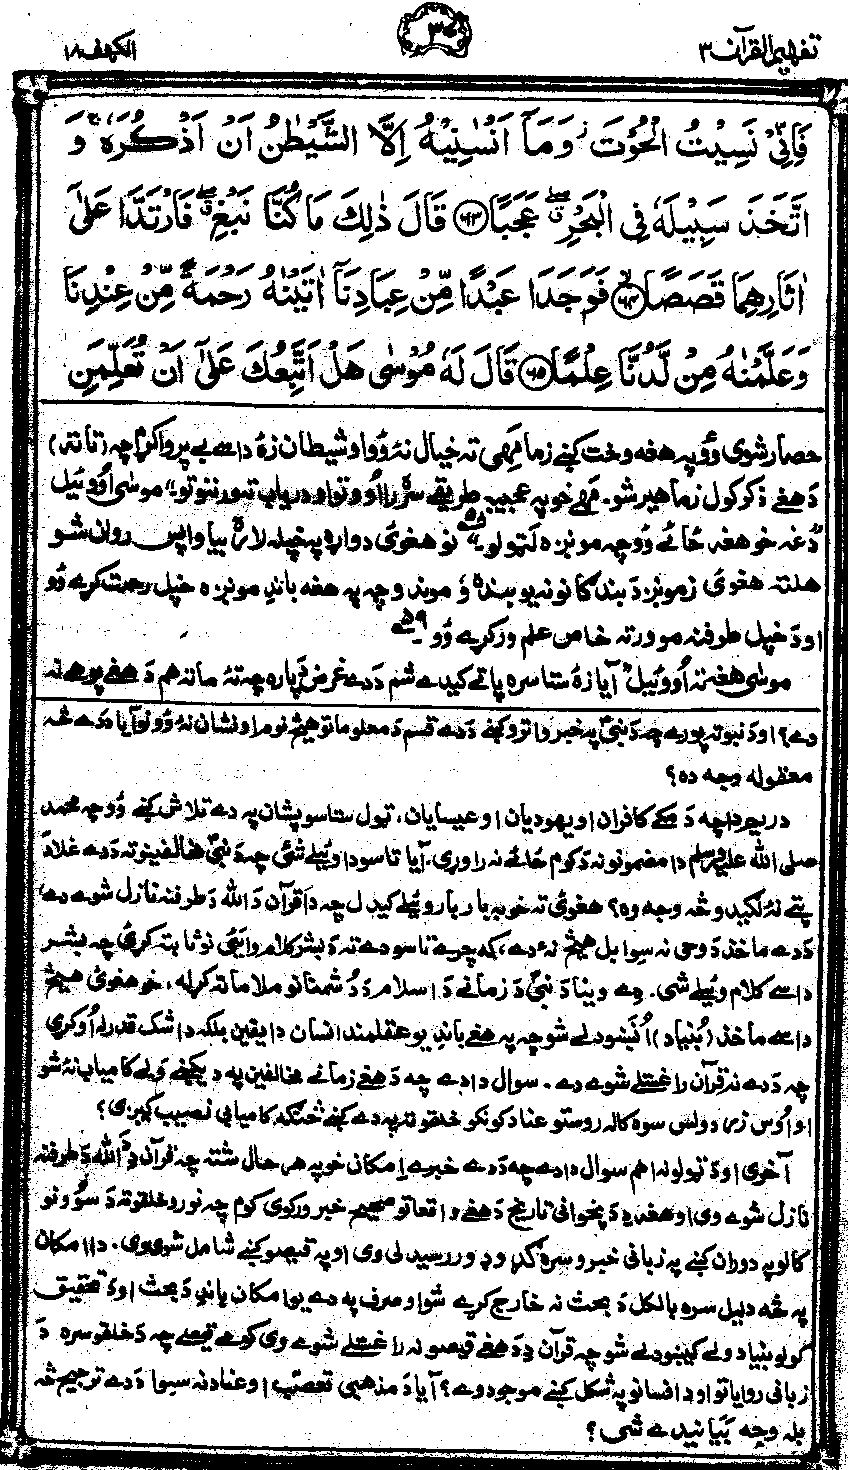 تفهیم القرآن ۳
۳۶
الکهف ۱۸
فَاِنِّیْ نَسِیْتُ الْحُوْتَ ۫ وَمَاۤ اَنْسٰنِیْهُ اِلَّا الشَّیْطٰنُ اَنْ اَذْكُرَهٗ ۚ وَ
اتَّخَذَ سَبِیْلَهٗ فِی الْبَحْرِ ۖۗ عَجَبًا ﴿۶۳﴾ قَالَ ذٰلِكَ مَا كُنَّا نَبْغِ ۖۗ فَارْتَدَّا عَلٰۤی
اٰثَارِهِمَا قَصَصًا ﴿۶۴﴾ فَوَجَدَا عَبْدًا مِّنْ عِبَادِنَاۤ اٰتَیْنٰهُ رَحْمَةً مِّنْ عِنْدِنَا
وَعَلَّمْنٰهُ مِنْ لَّدُنَّا عِلْمًا ﴿۶۵﴾ قَالَ لَهٗ مُوْسٰی هَلْ اَتَّبِعُكَ عَلٰۤی اَنْ تُعَلِّمَنِ
حصار شوی وُو په هغه وخت کښے زما مَهی ته خیال نهٔ وُو او شیطان زهٔ داسے بے پروا کړم چه (تا ته)
دَ هغے ذکر کول زما هیر شو. مَهے خو په عجیبه طریقے سره را اُووتو او دریاب ته ورننوتو." موسٰی اُووئیل
"دغه خو هغه ځائے وُو چه مونږه لټولو." نو هغوی دواړه په خپله لاره بیا واپس روان شو
هلته هغوی زمونږ دَ بندګانو نه یو بنده وُ موندو چه په هغه باندِ مونږه خپل رحمت کړے وُو
او دَ خپل طرفنه مو ورته خاص علم ورکړے وُو
موسٰی هغه ته اُووئیل "آیا زهٔ ستا سره پاتے کیدے شم دَ دے غرض دَ پاره چه تهٔ ما ته هم دَ هغے پوهے نه
دے؟ او دَ نبوته پورے چه دَ نبیؐ په خبر داترو کښے دَ دے قسم دَ معلوماتو هیڅ نوم او نشان نهٔ وُو نو آیا دَ دے څهٔ
معقوله وجه ده؟
دریم دا چه دَ مکے کافران او یهودیان او عیسایان، ټول ستاسو پشان په دے تلاش کښے وُو چه محمد
صلی الله علیه وسلم دا مضمونونه دَ کوم ځائے نه راوړی. آیا تاسو دا وئیلے شئ چه دَ نبیؐ مخالفینو ته دَ دے غلادَ
پتے نهٔ لګیدو څهٔ وجه وه؟ هغوی ته خو به بار بار وئیلے کیدل چه دا قرآن دَ الله دَ طرفنه نازل شوے دے،
دَ دے ماخذ دَ وحی نه سِوا بل هیڅ نهٔ دے، که چرے تاسو دے ته دَ بشر کلام وایئ نو ثابته کړئ چه بشر
داسے کلام وئیلے شی. دے وینا دَ نبیؐ دَ زمانے دَ اسلام دَ دُشمنانو ملا ماته کړله، خو هغوی هیڅ
داسے ماخذ (بُنیاد) اُنهٔ ښودلے شو چه په هغے باندِ یو عقلمند انسان دا یقین بلکه دا شک قدرله اُوکړی
چه دَ دے نه قرآن راغستلے شوے دے. سوال دا دے چه دَ هغے زمانے مخالفین په دے پکښے وَلے کامیاب نهٔ شو
او اُوس زر دولس سوه کاله روستو عناد کوونکو خلقو ته په دے کښے څنګه کامیابی نصیب کیږی؟
آخری او دَ ټولو نه اهم سوال دا دے چه دَ دے خبرے اِمکان خو په هر حال شته چه قرآن دِ الله دَ طرفنه
نازل شوے وی او هغه دِ دَ پخوانی تاریخ دَ هغے واقعاتو صحیح خبر ورکوی کوم چه نورو خلقو ته دَ سوُونو
کالو په دوران کښے په زبانی خبرو سره ګډ وډ وررسیدلی وی او په قیصو کښے شامل شوی وی. دا امکان
په څهٔ دلیل سره بالکل دَ بحث نه خارج کړے شو او صرف په دے یو امکان باندِ دَ بحث او دَ تحقیق
کولو بنیاد ولے کیښودلے شو چه قرآن دِ دَ هغے قیصو نه راغستلے شوے وی کومے قیصے چه دَ خلقو سره دَ
زبانی روایاتو او دِ افسانو په شکل کښے موجود وے؟ آیا دَ مذهبی تعصب او عناد نه سِوا دَ دے ترجیح څهٔ
بله وجه بَیانیدے شی؟